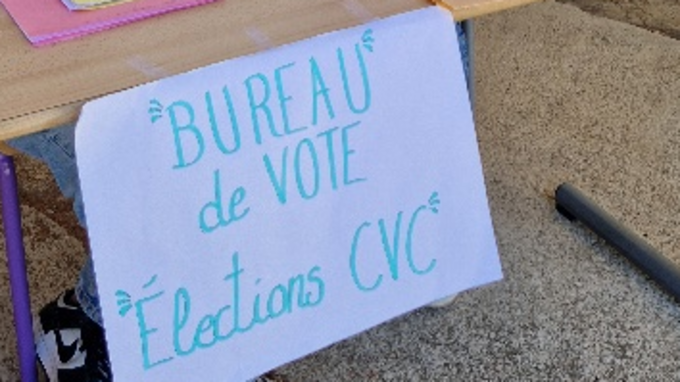 BUREAU
de VOTE
Élections CVC